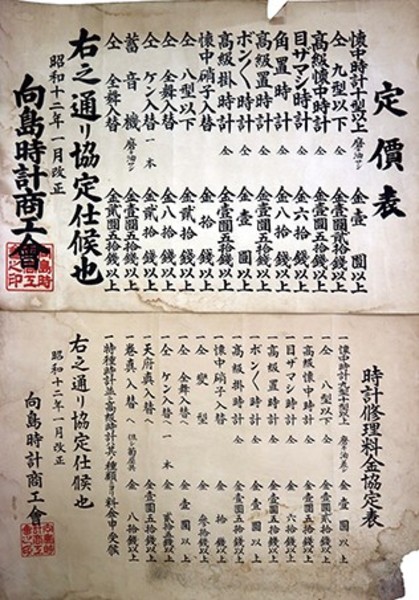 定價表
懷中時計十型以上 磨き油サシ 金壹圓以上
仝 九型以下 仝 金壹圓貳拾錢以上
高級懷中時計 仝 金壹圓五拾錢以上
目ザマシ時計 仝 金六拾錢以上
角置時計 仝 金八拾錢以上
高級置時計 仝 金壹圓五拾錢以上
ボン〱時計 仝 金壹圓以上
高級掛時計 仝 金壹圓五拾錢以上
懷中硝子入替 金拾錢以上
仝 八型以下 金貳拾錢以上
仝 全舞入替 金八拾錢以上
仝 ケン入替 一本 金貳拾錢以上
蓄音機 磨き油サシ 金壹圓五拾錢以上
仝 全舞入替 金貳圓五拾錢以上
右之通リ協定仕候也
昭和十二年一月改正
向島時計商工會
向島時計商工會之印
時計修理料金協定表
一懷中時計九型十型以上 磨き油差シ 金壹圓以上
一仝 八型以下 仝 金壹圓貳拾錢以上
一高級懷中時計 仝 金壹圓五拾錢以上
一目ザマシ時計 仝 金六拾錢以上
一角置時計 仝 金八拾錢以上
一高級置時計 仝 金壹圓五拾錢以上
一ボン〱時計 仝 金壹圓以上
一高級掛時計 仝 金壹圓五拾錢以上
一懷中硝子入替 金拾錢以上
一仝 變型 金參拾錢以上
一仝 全舞入替へ 金壹圓以上
一仝 ケン入替へ 一本 金貳拾五錢以上
一天府眞入替へ 金壹圓五拾錢以上
一卷眞入替へ 金八拾錢以上
右之通り協定仕候也
昭和十二年一月改正
向島時計商工會
向島時計商工會之印